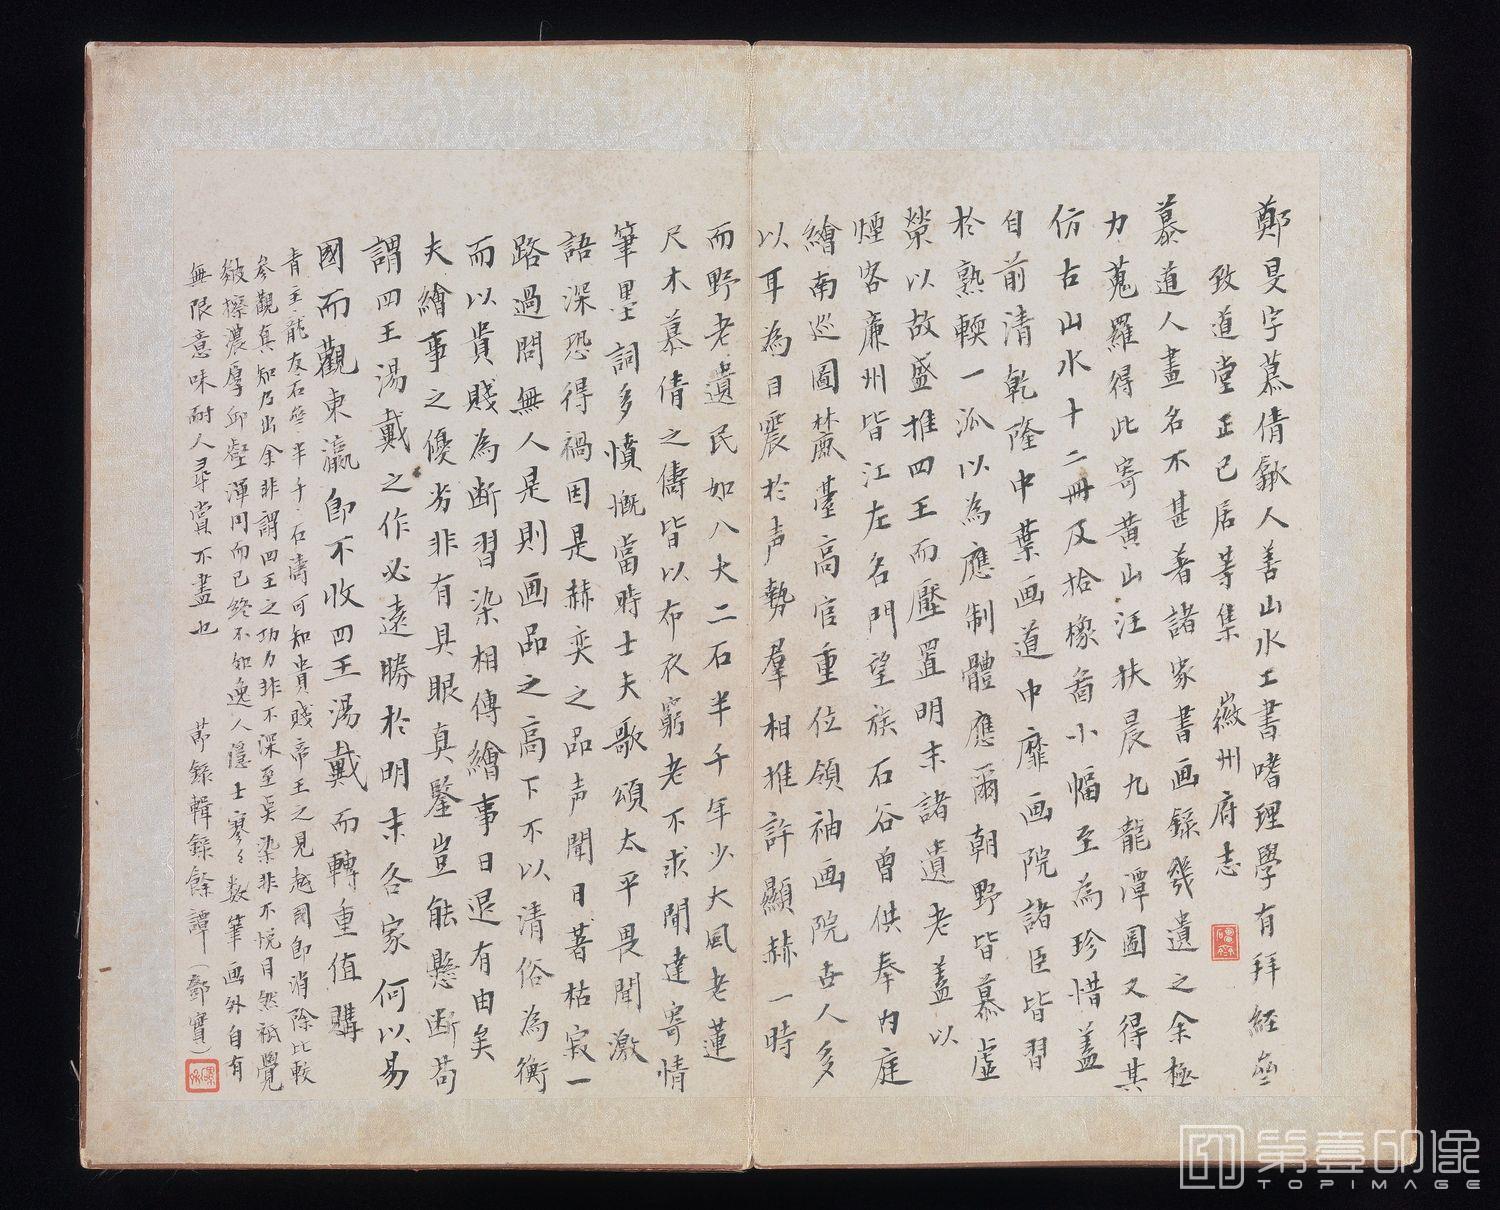 鄭旻字慕倩歙人善山水工書嗜理學有拜經齋
致道堂正己居等集　徽州府志
慕道人畫名不甚著諸家書画錄幾遺之余極
力蒐羅得此寄黄山汪扶晨九龍潭圖又得其
仿古山水十二冊及拾橡圖小幅至為珍惜蓋
自前清乾隆中葉画道中靡画院諸臣皆習
於熟輭一派以為應制體應爾朝野皆慕虛
榮以故盛推四王而壓置明末諸遺老蓋以
煙客廉州皆江左名門望族石谷曾供奉内庭
繪南巡圖麓臺高官重位領袖画院古人多
以耳為目震於声勢羣相推許顯赫一時
而野老遺民如八大二石半千年少大風老蓮
尺木慕倩之儔皆以布衣窮老不求聞達寄情
筆墨詞多憤慨當時士夫歌頌太平畏聞激
語深恐得禍因是赫奕之品声聞日著枯寂一
路過問無人是則画品之高下不以清俗為衡
而以貴賤為断習染相傳繪事日退有由矣
夫繪事之優劣非有具眼真鑒豈能懸断苟
謂四王湯戴之作必遠勝於明末各家何以易
國而觀東瀛即不收四王湯戴而轉重值購
青主龍友石谿半千石濤可知貴賤帝王之見越國即消除比較
參觀真知乃出余非謂四王之功力非不深至渲染非不悅目然祗覺
皴擦濃厚邱壑渾円而已終不如逸人隱士寥々数筆画外自有
無限意味耐人尋賞不盡也　節錄輯錄餘譚（鄧實）
第壹印像
TOPIMAGE